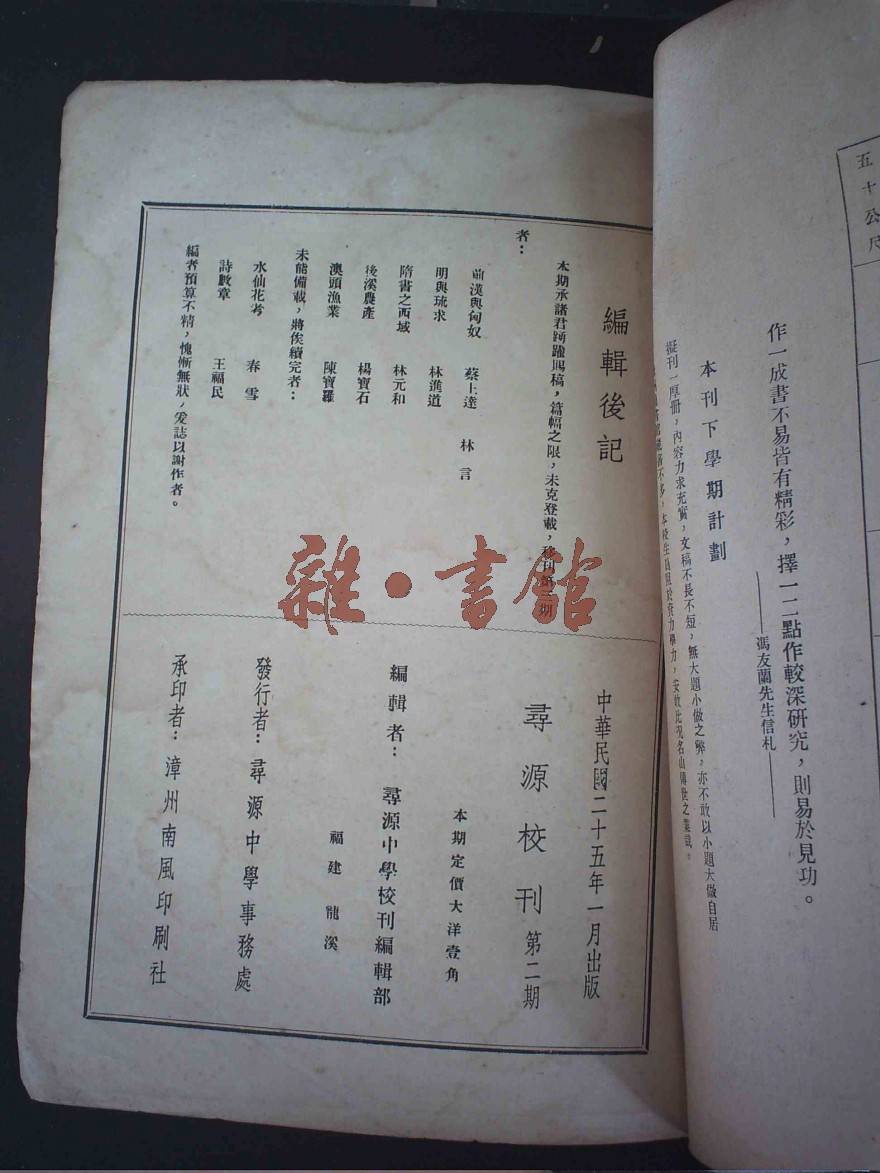 五十公尺
作一成書不易皆有精彩，擇一二點作較深研究，則易於見功。
——馮友蘭先生信札——
本刊下學期計劃
擬刊一厚冊，內容力求充實，文稿不長不短，無大題小做之弊，亦不敢以小題大做自居
不多，本校生員限於資力學力，安敢比於名山傳世之業哉。
編輯後記
本期承諸君踴躍賜稿，篇幅之限，未克登載，移刊第三期
者：
前漢與匈奴　蔡上達　林言
明與琉求　林進道
隋書之西域　林元和
後溪農產　楊寶石
澳頭漁業　陳寶羅
未能備載，將俟續完者：
水仙花考　春雪
詩數章　王福民
編者預算不精，愧慚無狀，爰誌以謝作者。
中華民國二十五年一月出版
尋源校刊第二期
本期定價大洋壹角
編輯者：尋源中學校刊編輯部
福建龍溪
發行者：尋源中學事務處
承印者：漳州南風印刷社
雜·書館